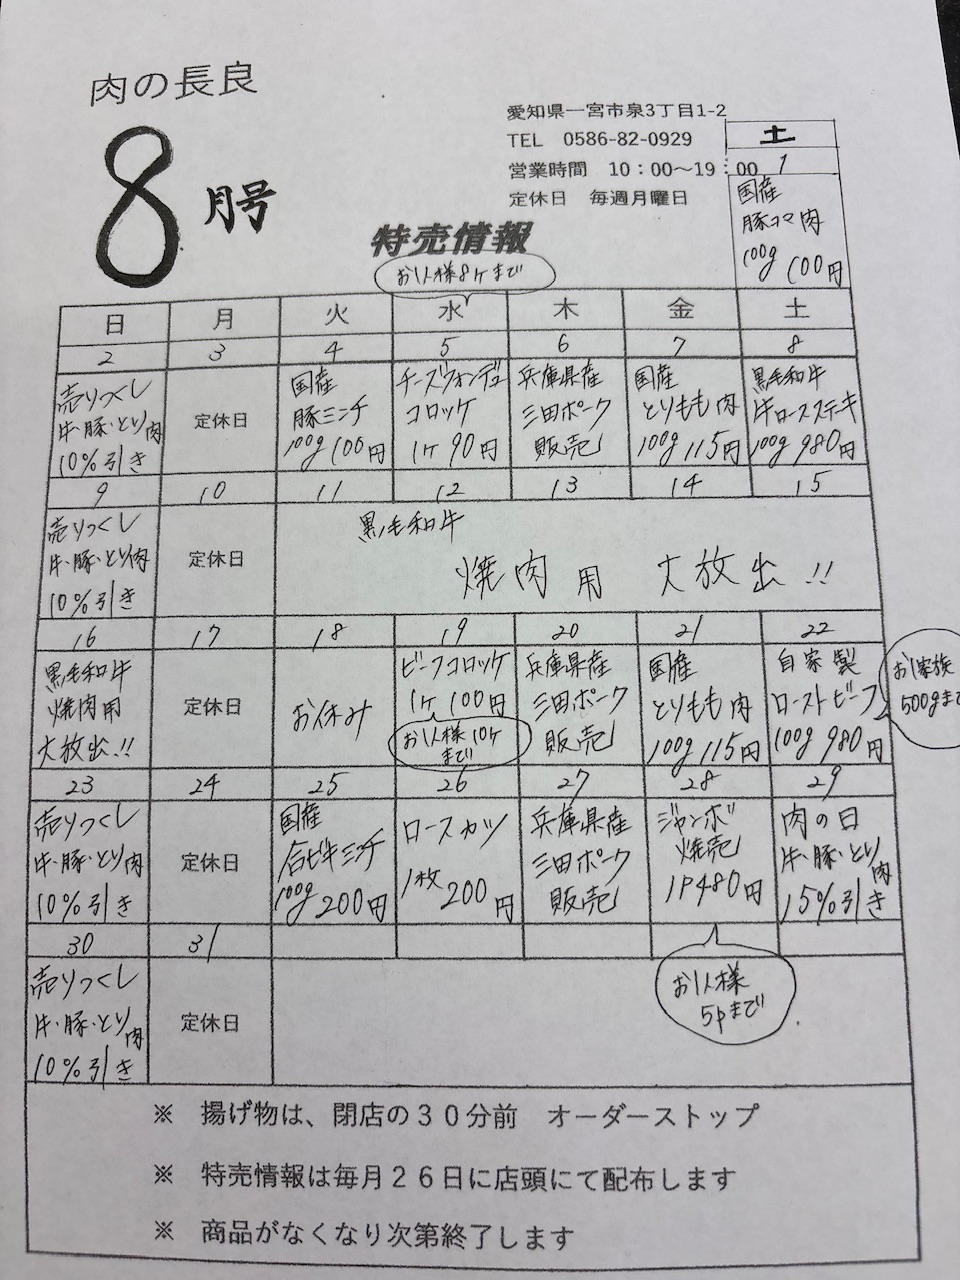 肉の長良
8月号
愛知県一宮市泉3丁目1-2
TEL 0586-82-0929
営業時間 10：00～19：00
定休日 毎週月曜日
土
1
国産
豚コマ肉
100g 100円
特売情報
お1人様8ヶまで
日 月 火 水 木 金 土
2 3 4 5 6 7 8
売りつくし
牛・豚・とり肉
10%引き
定休日
国産
豚ミンチ
100g 100円
チーズフォンデュ
コロッケ
1ヶ 90円
兵庫県産
三田ポーク
販売
国産
とりもも肉
100g 115円
黒毛和牛
牛ロースステーキ
100g 980円
9 10 11 12 13 14 15
売りつくし
牛・豚・とり肉
10%引き
定休日
黒毛和牛
焼肉用 大放出!!
16 17 18 19 20 21 22
黒毛和牛
焼肉用
大放出!!
定休日
お休み
ビーフコロッケ
1ヶ 100円
お1人様10ヶ
まで
兵庫県産
三田ポーク
販売
国産
とりもも肉
100g 115円
自家製
ローストビーフ
100g 980円
お1家族
500gまで
23 24 25 26 27 28 29
売りつくし
牛・豚・とり肉
10%引き
定休日
国産
合ビキミンチ
100g 200円
ロースカツ
1枚 200円
兵庫県産
三田ポーク
販売
ジャンボ
焼売
1P480円
お1人様
5pまで
肉の日
牛・豚・とり肉
15%引き
30 31
売りつくし
牛・豚・とり肉
10%引き
定休日
※ 揚げ物は、閉店の３０分前 オーダーストップ
※ 特売情報は毎月２６日に店頭にて配布します
※ 商品がなくなり次第終了します